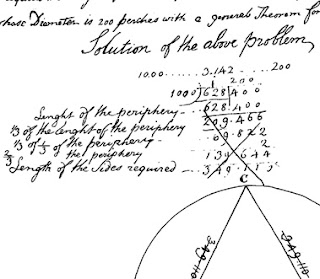 whose Diameter is 200 perches with a general Theorem for
Solution of the above problem,
1000 ....... 3.142 ... 200
200
1000) 628|400
Lenght of the periphery — 628.400
⅓ of the lenght of the periphery — 209.466
⅓ of ⅓ of the periphery — 69.822
⅔ the periphery
Length of the Sides required — 349.11
C
349.11